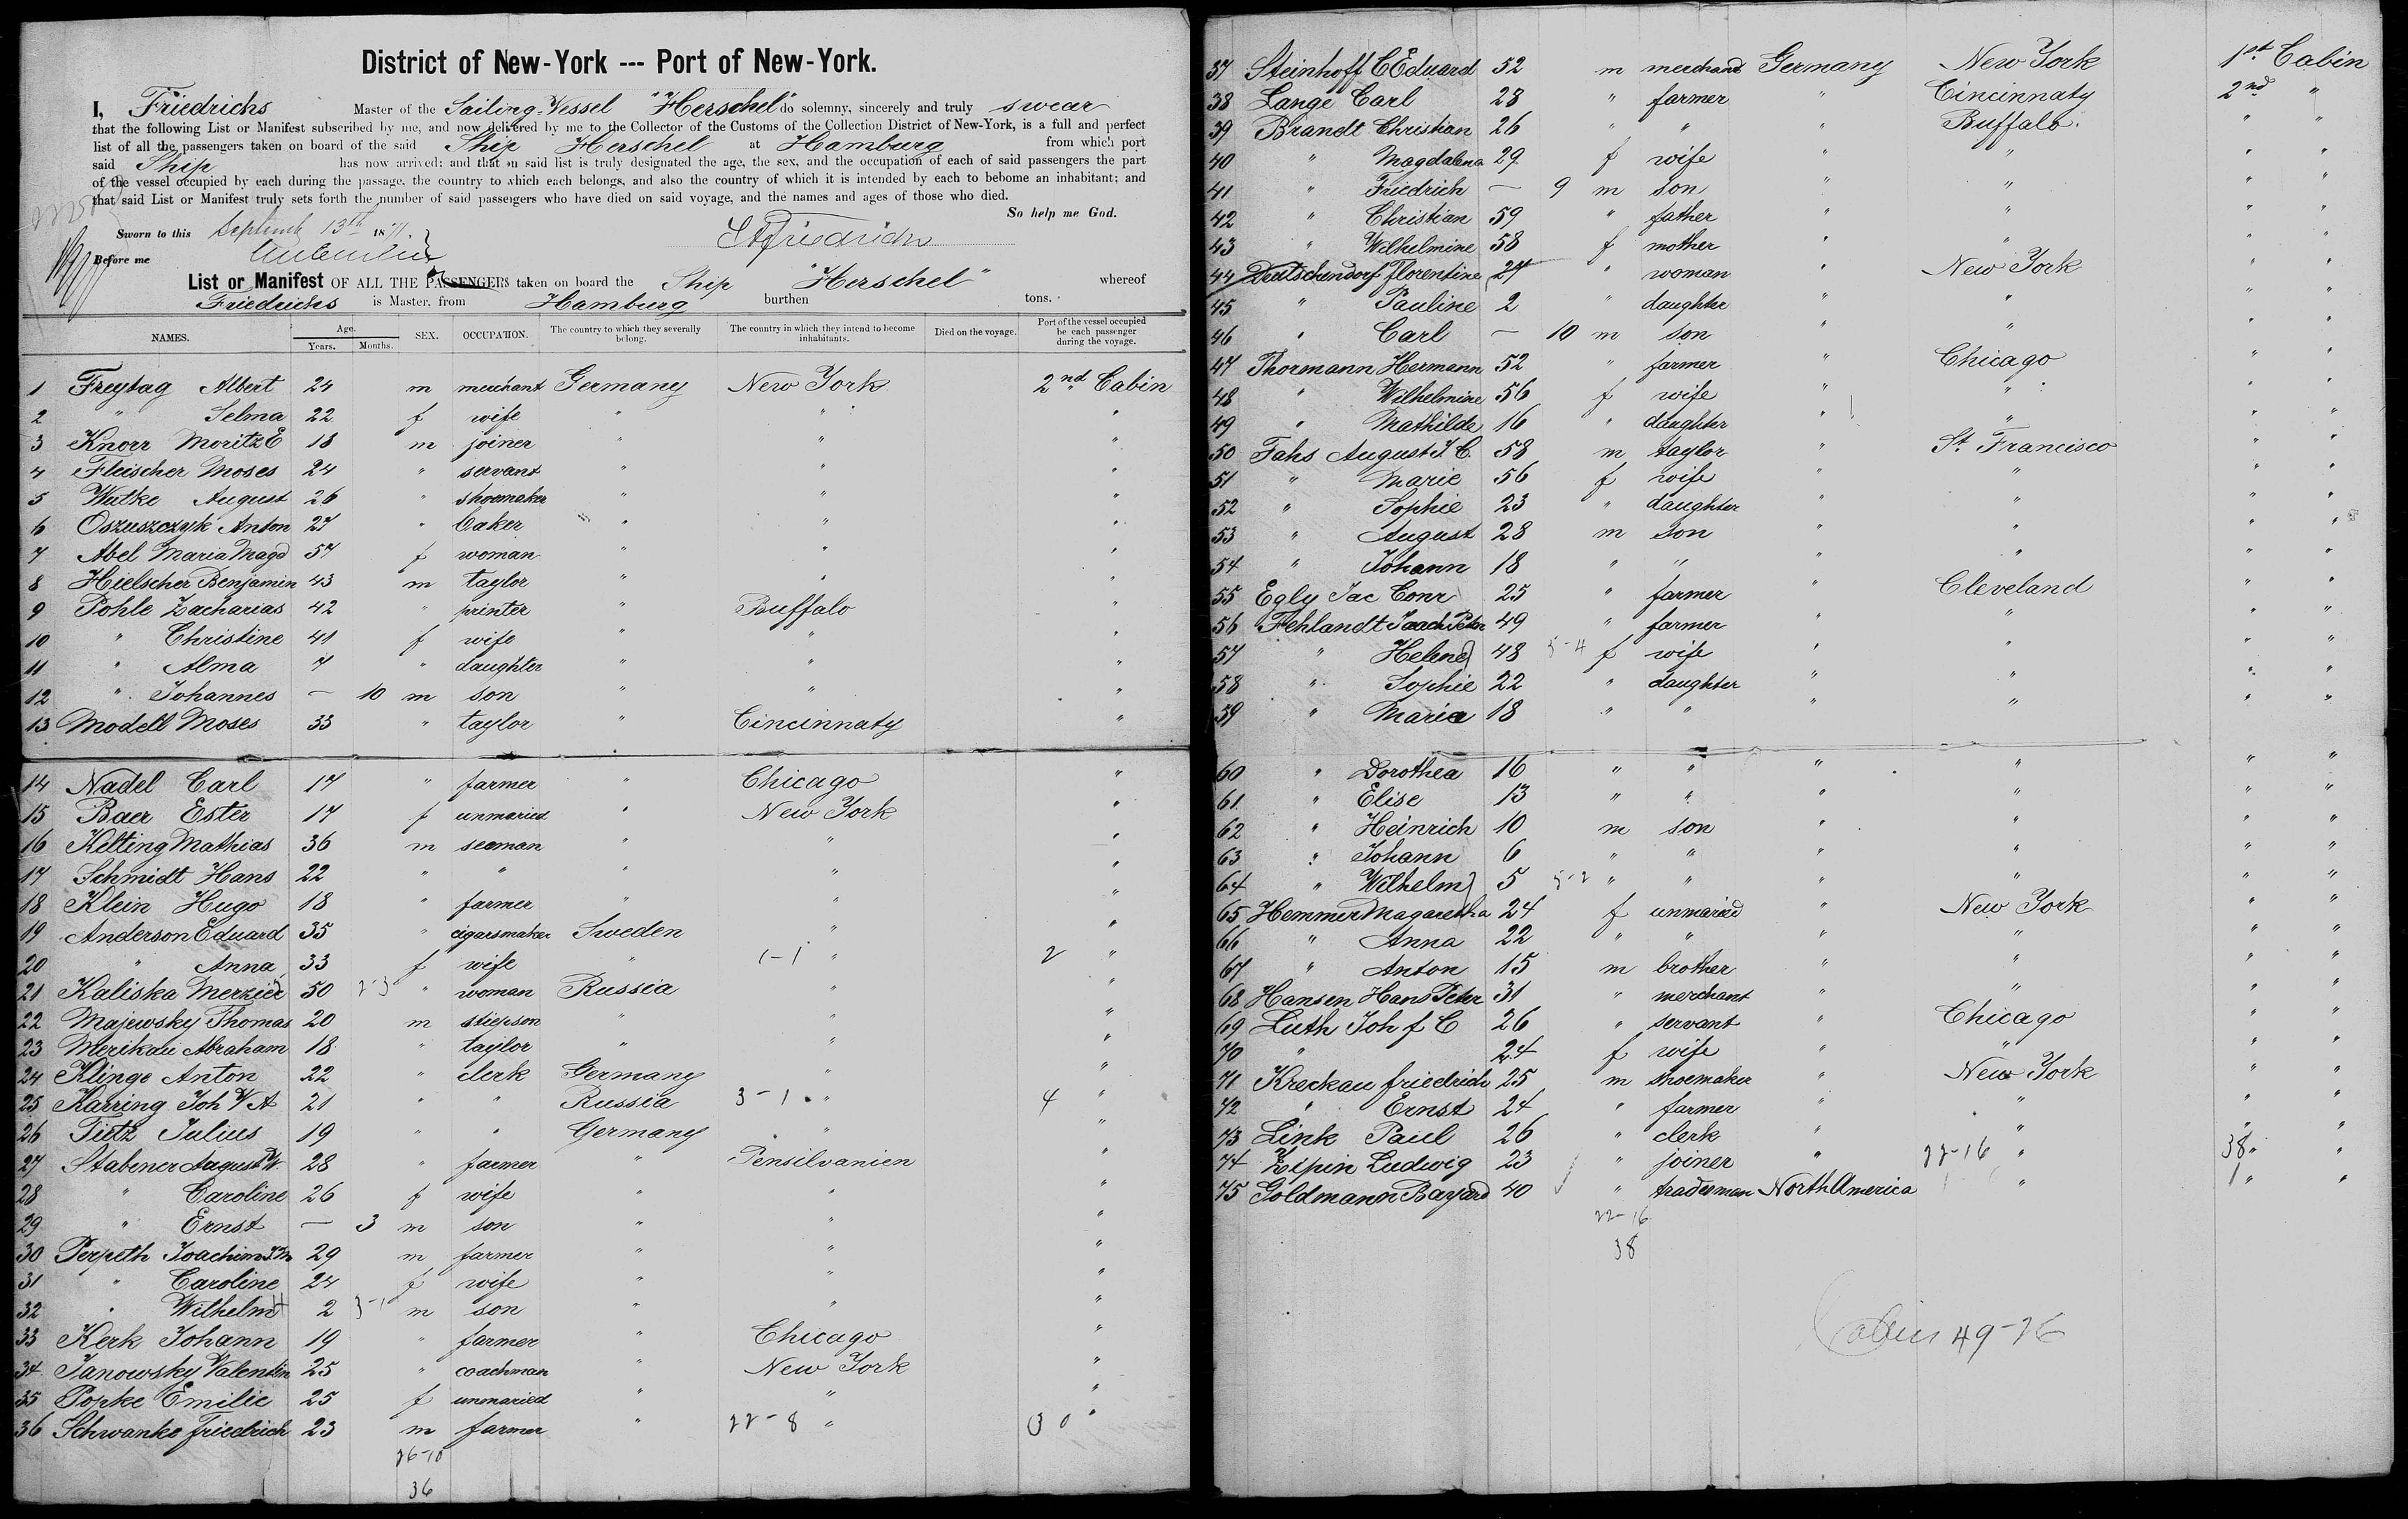 District of New-York --- Port of New-York.
I, Friedrichs Master of the Sailing-Vessel "Herschel" do solemny, sincerely and truly swear
that the following List or Manifest subscribed by me, and now delivered by me to the Collector of the Customs of the Collection District of New-York, is a full and perfect
list of all the passengers taken on board of the said Ship Herschel at Hamburg from which port
said Ship has now arrived: and that on said list is truly designated the age, the sex, and the occupation of each of said passengers the part
of the vessel occupied by each during the passage, the country to which each belongs, and also the country of which it is intended by each to bebome an inhabitant; and
that said List or Manifest truly sets forth the number of said passengers who have died on said voyage, and the names and ages of those who died.
So help me God.
Sworn to this Septemb 13th 1871.
Friedrichs
Before me
List or Manifest OF ALL THE PASSENGERS taken on board the Ship "Herschel" whereof
Friedrichs is Master, from Hamburg burthen tons.
NAMES. Age. Years. Months. SEX. OCCUPATION. The country to which they severally belong. The country in which they intend to become inhabitants. Died on the voyage. Port of the vessel occupied be each passenger during the voyage.
1 Freytag Albert 24 m merchant Germany New York 2nd Cabin
2 " Selma 22 f wife " " "
3 Knorr Moritz E 18 m joiner " " "
4 Fleischer Moses 24 " servant " " "
5 Watke August 26 " shoemaker " " "
6 Oszuszczyk Anton 27 " baker " " "
7 Abel Maria Magd 57 f woman " " "
8 Hielscher Benjamin 43 m taylor " " "
9 Pohle Zacharias 42 " printer " Buffalo "
10 " Christine 41 f wife " " "
11 " Alma 7 " daughter " " "
12 " Johannes — 10 m son " " "
13 Modell Moses 33 " taylor " Cincinnaty "
14 Nadel Carl 17 " farmer " Chicago "
15 Baer Ester 17 f unmaried " New York "
16 Kelting Mathias 36 m seaman " " "
17 Schmidt Hans 22 " " " " "
18 Klein Hugo 18 " farmer " " "
19 Anderson Eduard 35 " cigarsmaker Sweden " "
20 " Anna 33 f wife " 1-1 " 2 "
21 Kaliska Merzied 50 2-3 " woman Russia " "
22 Majewsky Thomas 20 m stiepson " " "
23 Merikau Abraham 18 " taylor " " "
24 Klinge Anton 22 " clerk Germany " "
25 Karring Joh V A 21 " " Russia 3-1 " 4 "
26 Tietz Julius 19 " " Germany " "
27 Stabener August W 28 " farmer " Pensilvanien "
28 " Caroline 26 f wife " " "
29 " Ernst — 3 m son " " "
30 Perpeth Joachim J M 29 m farmer " " "
31 " Caroline 24 f wife " " "
32 " Wilhelm 2 3-1 m son " " "
33 Kerk Johann 19 " farmer " Chicago "
34 Janowsky Valentin 25 " coachman " New York "
35 Popke Emilie 25 f unmaried " " "
36 Schwanke Friedrich 23 m farmer " 22-8 " 30 "
26-10
36
37 Steinhoff C Eduard 52 m merchant Germany New York 1st Cabin
38 Lange Carl 28 " farmer " Cincinnaty 2nd "
39 Brandt Christian 26 " " " Buffalo. " "
40 " Magdalena 29 f wife " " " "
41 " Friedrich — 9 m son " " " "
42 " Christian 59 " father " " " "
43 " Wilhelmine 58 f mother " " " "
44 Deutschendorf Florentine 27 " woman " New York " "
45 " Pauline 2 " daughter " " " "
46 " Carl — 10 m son " " " "
47 Thormann Hermann 52 " farmer " Chicago " "
48 " Wilhelmine 56 f wife " " " "
49 " Mathilde 16 " daughter " " " "
50 Fahs August J C. 58 m taylor " St. Francisco " "
51 " Marie 56 f wife " " " "
52 " Sophie 23 " daughter " " " "
53 " August 28 m son " " " "
54 " Johann 18 " " " " " "
55 Egly Jac Conr 25 " farmer " Cleveland " "
56 Fehlandt Joach Peter 49 " farmer " " " "
57 " Helene 48 5-4 f wife " " " "
58 " Sophie 22 " daughter " " " "
59 " Maria 18 " " " " " "
60 " Dorothea 16 " " " " " "
61 " Elise 13 " " " " " "
62 " Heinrich 10 m son " " " "
63 " Johann 6 " " " " " "
64 " Wilhelm 5 5-2 " " " " " "
65 Hemmer Magaretha 24 f unmaried " New York " "
66 " Anna 22 " " " " " "
67 " Anton 15 m brother " " " "
68 Hansen Hans Peter 31 " merchant " " " "
69 Luth Joh f C 26 " servant " Chicago " "
70 " 24 f wife " " " "
71 Kreckau friedrich 25 m shoemaker " New York " "
72 " Ernst 24 " farmer " " " "
73 Link Paul 26 " clerk " " " "
74 Zipin Ludwig 23 " joiner " 22-16 " 38 " "
75 Goldmann Bayard 40 " tradesman North America 1 " 1 " "
22-16
38
Cabin 49-26